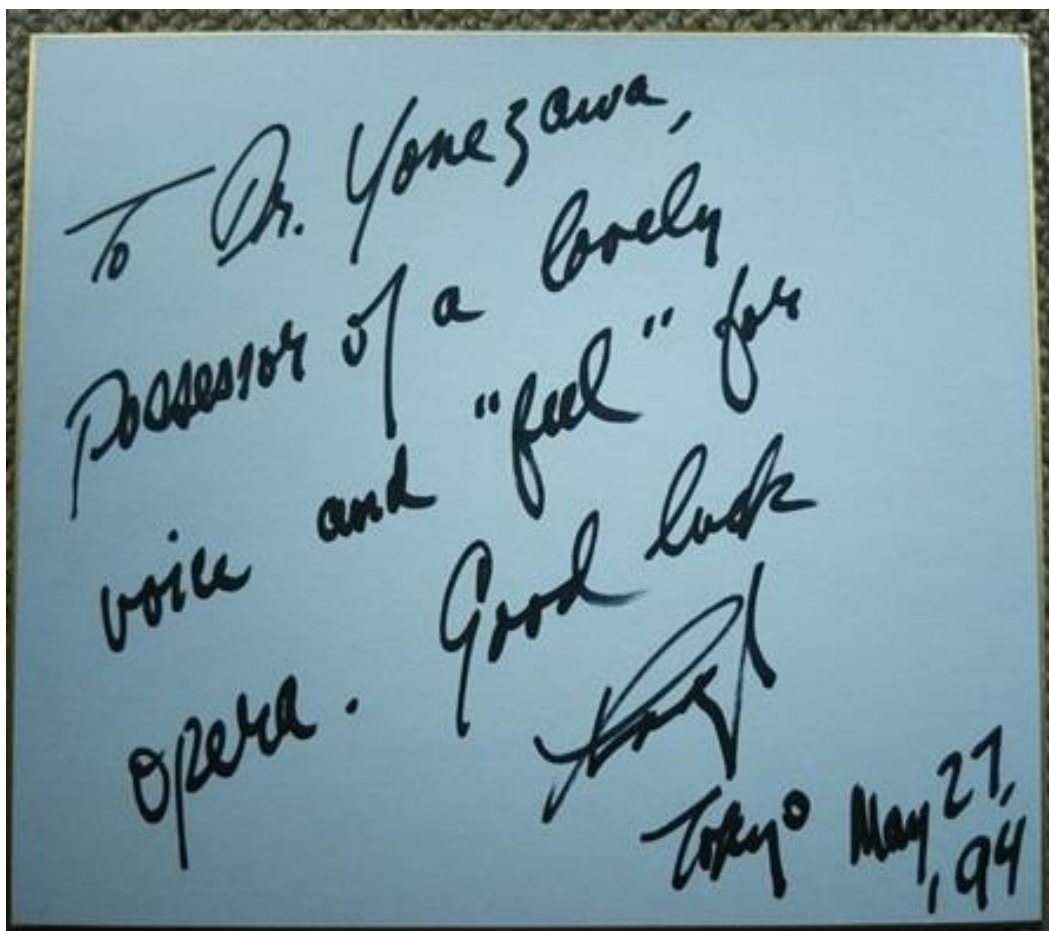 To Dr. Yonezawa,
Possessor of a lovely
voice and "feel" for
opera. Good luck
Tokyo May 27,
,94